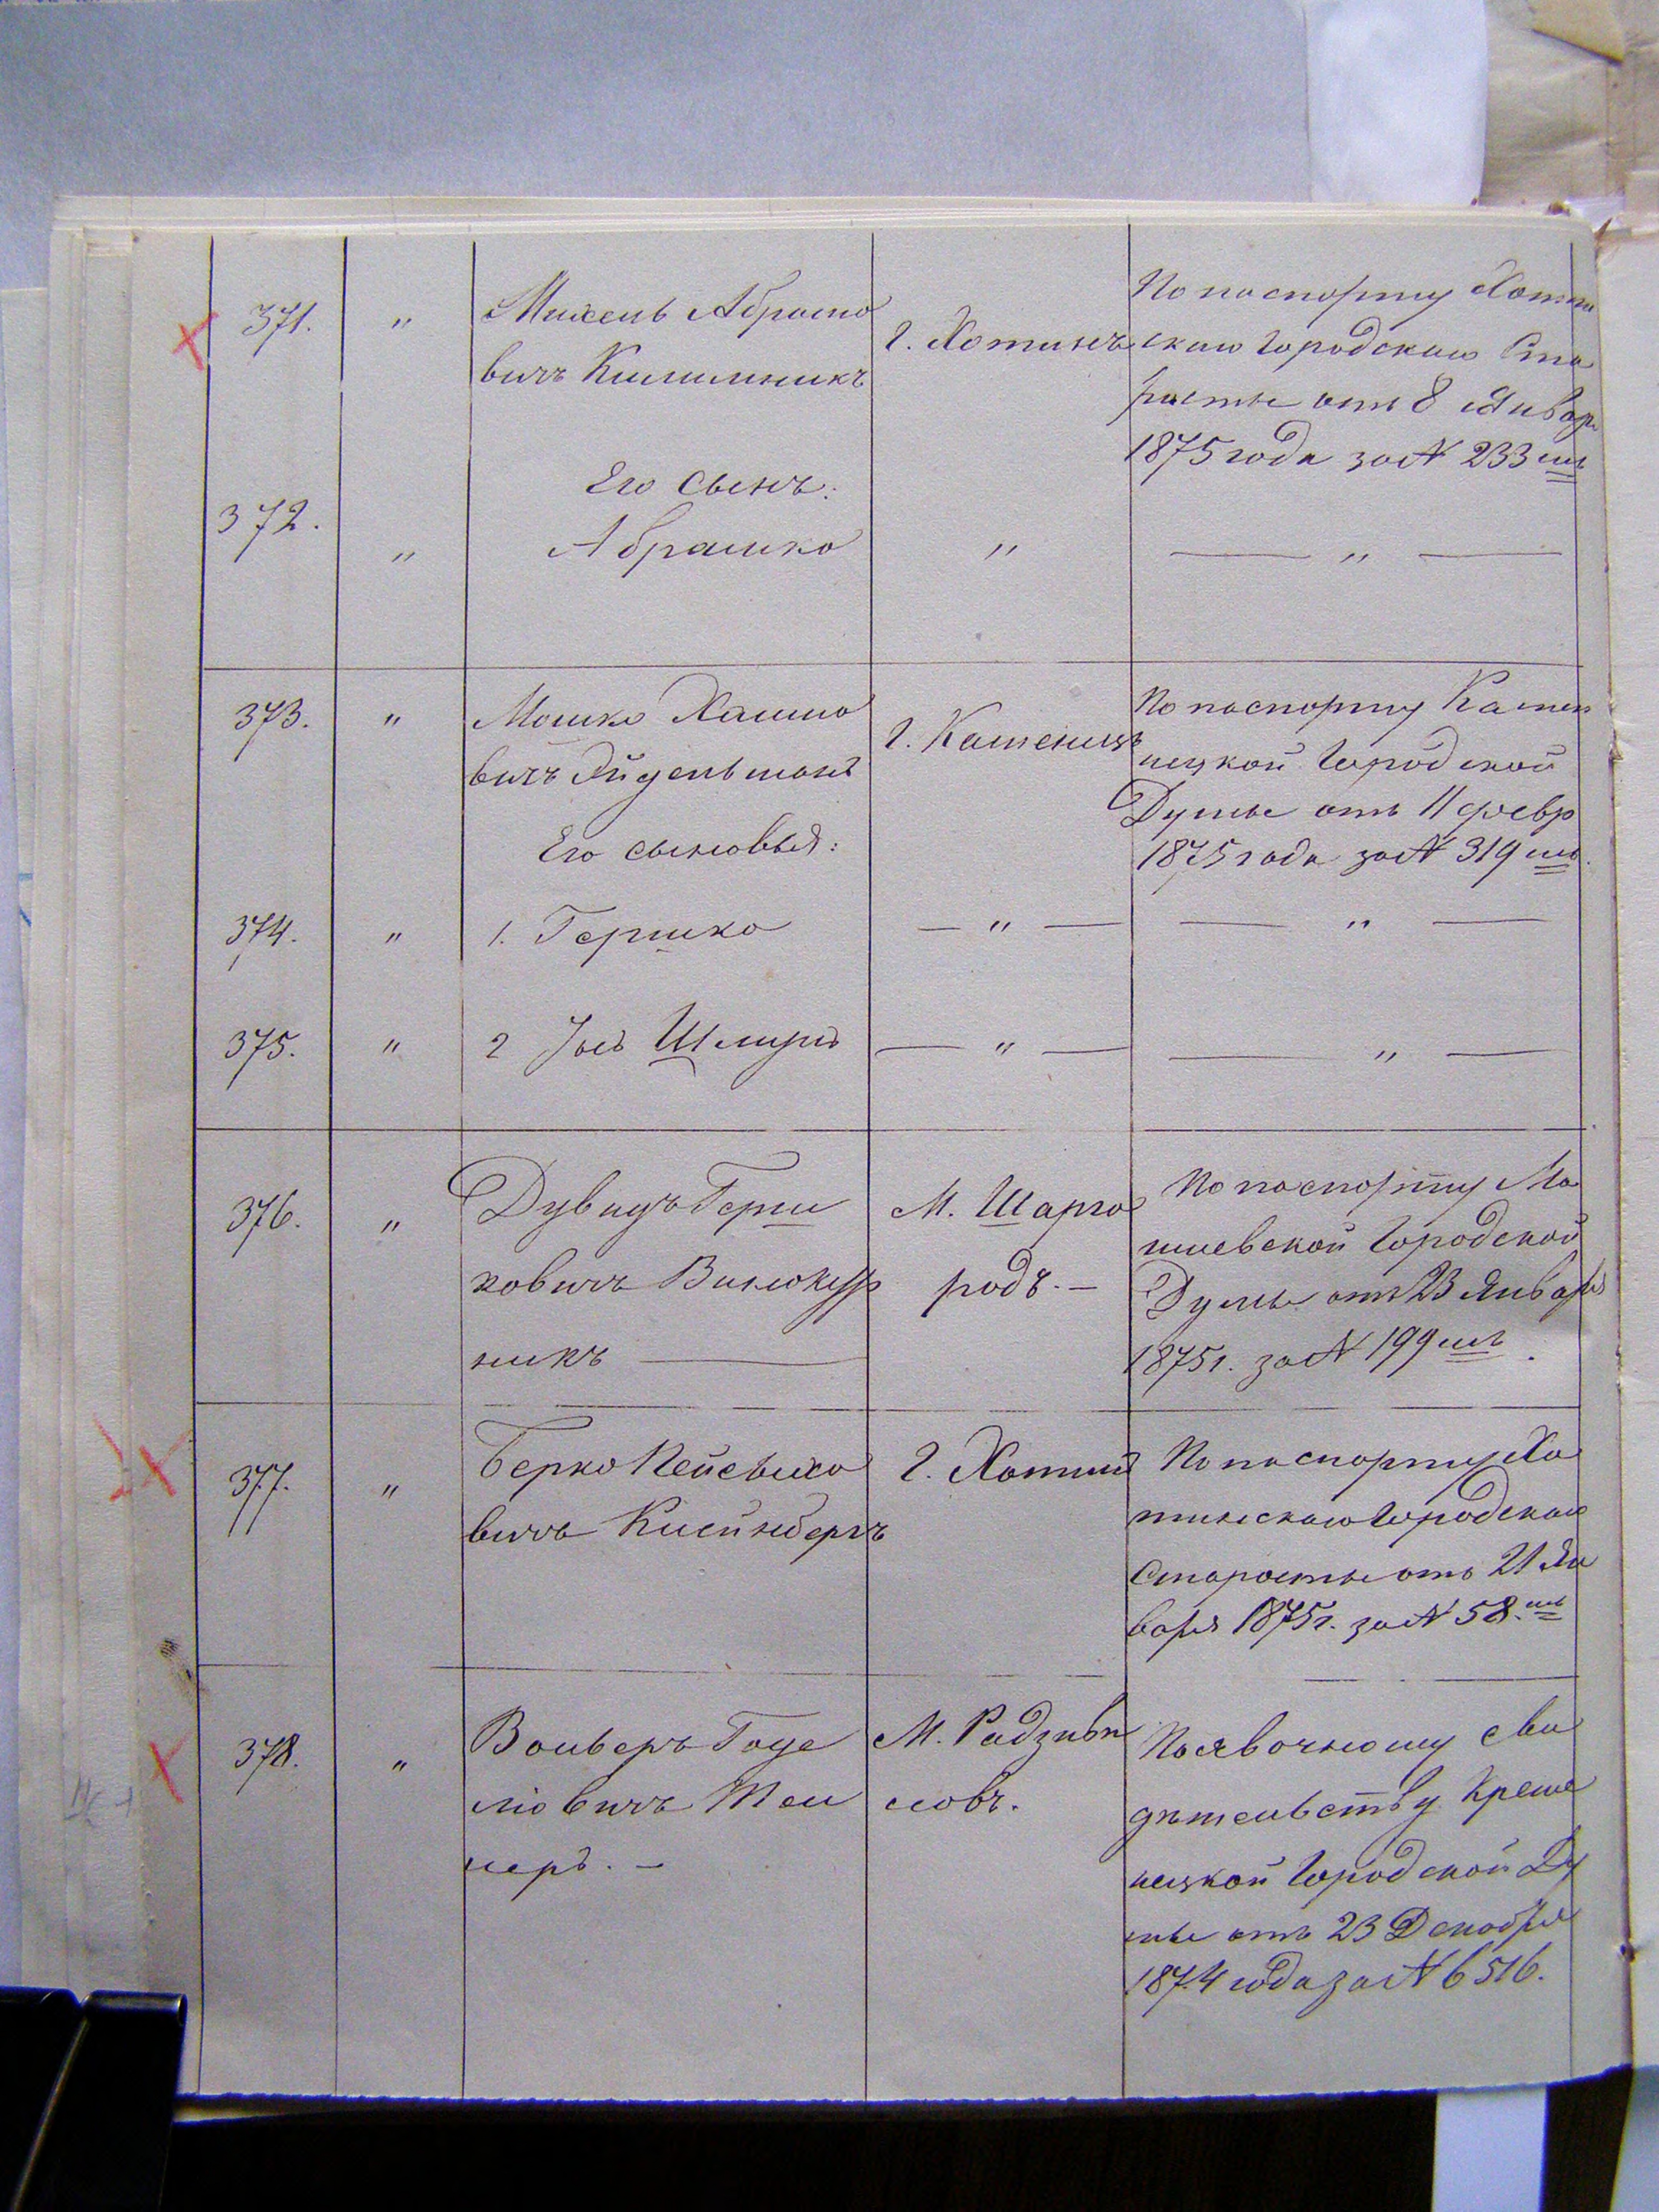 371. " Михель Абрамо
вичъ Килимникъ
г. Хотинъ
По паспорту Хотин
скаго Городскаго Ста
росты отъ 8 Января
1875 года за № 233 мъ
Его сынъ:
372. " Абрамко " — " —
373. " Мошко Хаимо
вичъ Айдельманъ
г. Каменецъ
По паспорту Камен
ецкой Городской
Думы отъ 11 февр
1875 года за № 319 мъ.
Его сыновья:
374. " 1. Гершко — " — — " —
375. " 2 Іось Шмуль — " — — " —
376. " Дувидъ Герш
ковичъ Винокур
никъ —
М. Шарго
родъ. —
По паспорту Мо
гилевской Городской
Думы отъ 23 Января
1875 г. за № 199 мъ.
377. " Берко Пейсыхо
вичъ Клейнбергъ
г. Хотинъ
По паспорту Хо
тинскаго Городскаго
Старосты отъ 21 Ян
варя 1875 г. за № 58. мъ
378. " Вольверъ Годе
ліовичъ
неръ. —
М. Радзиви
ловъ.
По явочному сви
дѣтельству Креме
нецкой Городской Ду
мы отъ 23 Декабря
1874 года за № 6516.